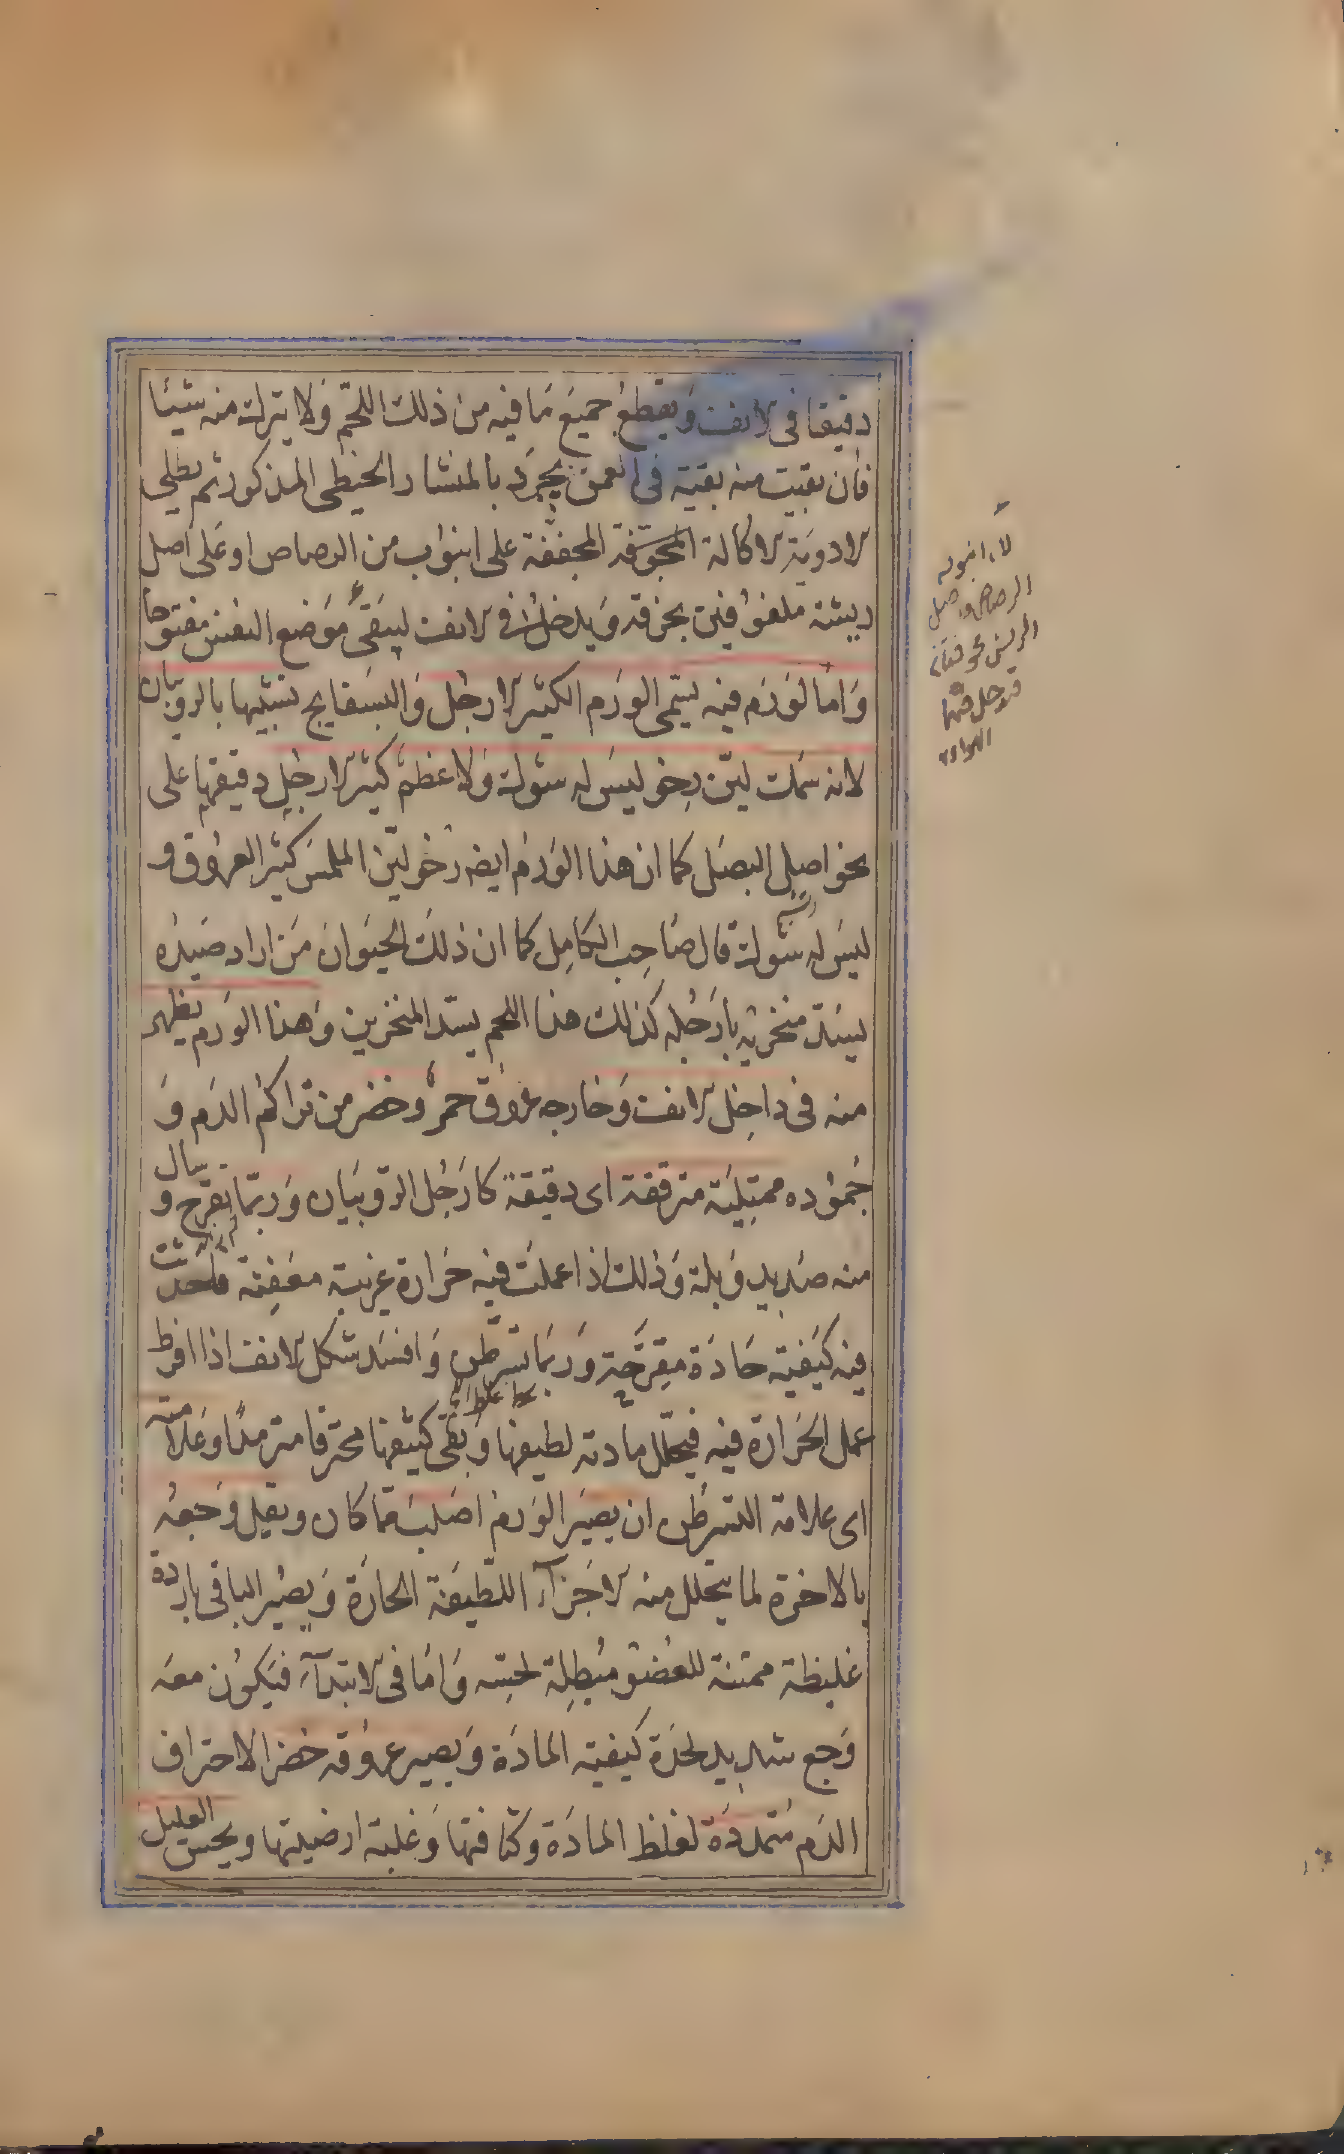 دقيقا فى الانف ويقطع جميع ما فيه من ذلك اللحم ولا يترك منه شيئا
فان بقيت منه بقية فى العمق يجرد بالمنشار الخيطى المذكور ثم يطلى
الادوية الاكالة المجففة على انبوب من الرصاص او على اصل
ريشة ملفوفين بخرقة ويدخل فى الانف ليبقى موضع النفس مفتوحا
واما لورم فيه يسمى الورم الكثير الارجل والبسفايج تشبيها بالروبيان
لانه سمك لين رخو ليس له شوك ولا عظم كثير الارجل دقيقها على
نحو اصل البصل كما ان هذا الورم ايضا رخو لين الملمس كثير العروق و
ليس له شوك قال صاحب الكامل كما ان ذلك الحيوان من اراد صيده
يسد منخريه بارجله كذلك هذا اللحم يسد المنخرين وهذا الورم يظهر
منه فى داخل الانف وخارجه عروق حمر وخضر من تراكم الدم و
جموده ممتلية مترققة اى دقيقة كارجل الروبيان وربما يقرح و يسال
منه صديد وبلة وذلك اذا عملت فيه حرارة غريبة معفنة احدثت
فيه كيفية حادة مقرحة وربما تسرطن وافسد شكل الانف اذا افرط
عمل الحرارة فيه فيحلل مادته لطيفها وبقى كثيفها محترقا مترمدا وعلامته
اى علامة التسرطن ان يصير الورم اصلب مما كان ويقل وجعه
بالاخرة لما يتحلل منه الاجزاء اللطيفة الحارة ويصير الباقى باردة
غليظة مميتة للعضو مبطلة لحسه واما فى الابتداء فيكون معه
وجع شديد لحدة كيفية المادة ويصير عروقه خضرا لاحتراق
الدم متمددة لغلظ المادة وكثافتها وغلبة ارضيتها ويحس العليل
لان انبوبه
الرصاص واصل
الريش مجوفتان
فيدخل فيهما
الهواء